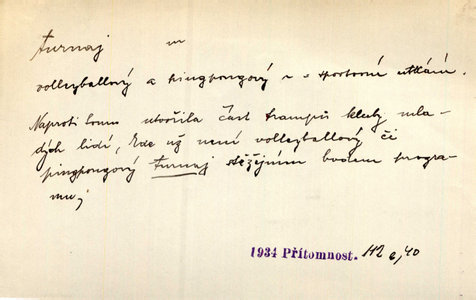 turnaj m
volleyballový a pingpongový ~ = sportovní utkání.
Naproti tomu utvořila část trampů kluby mla-
dých lidí, kde už není volleyballový či
pingpongový turnaj stěžejním bodem progra-
mu;
1934 Přítomnost. 40